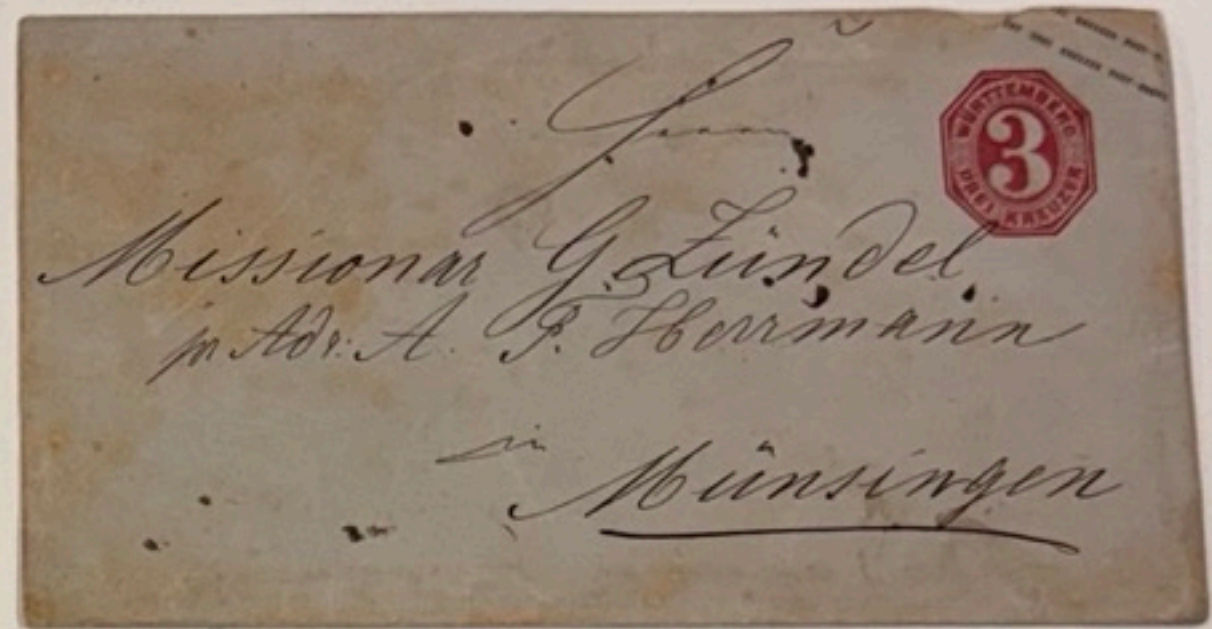 Herrn
WÜRTTEMBERG
3
DREI KREUZER
Missionar G. Zündel
pr Adr: A. F. Herrmann
in
Münsingen